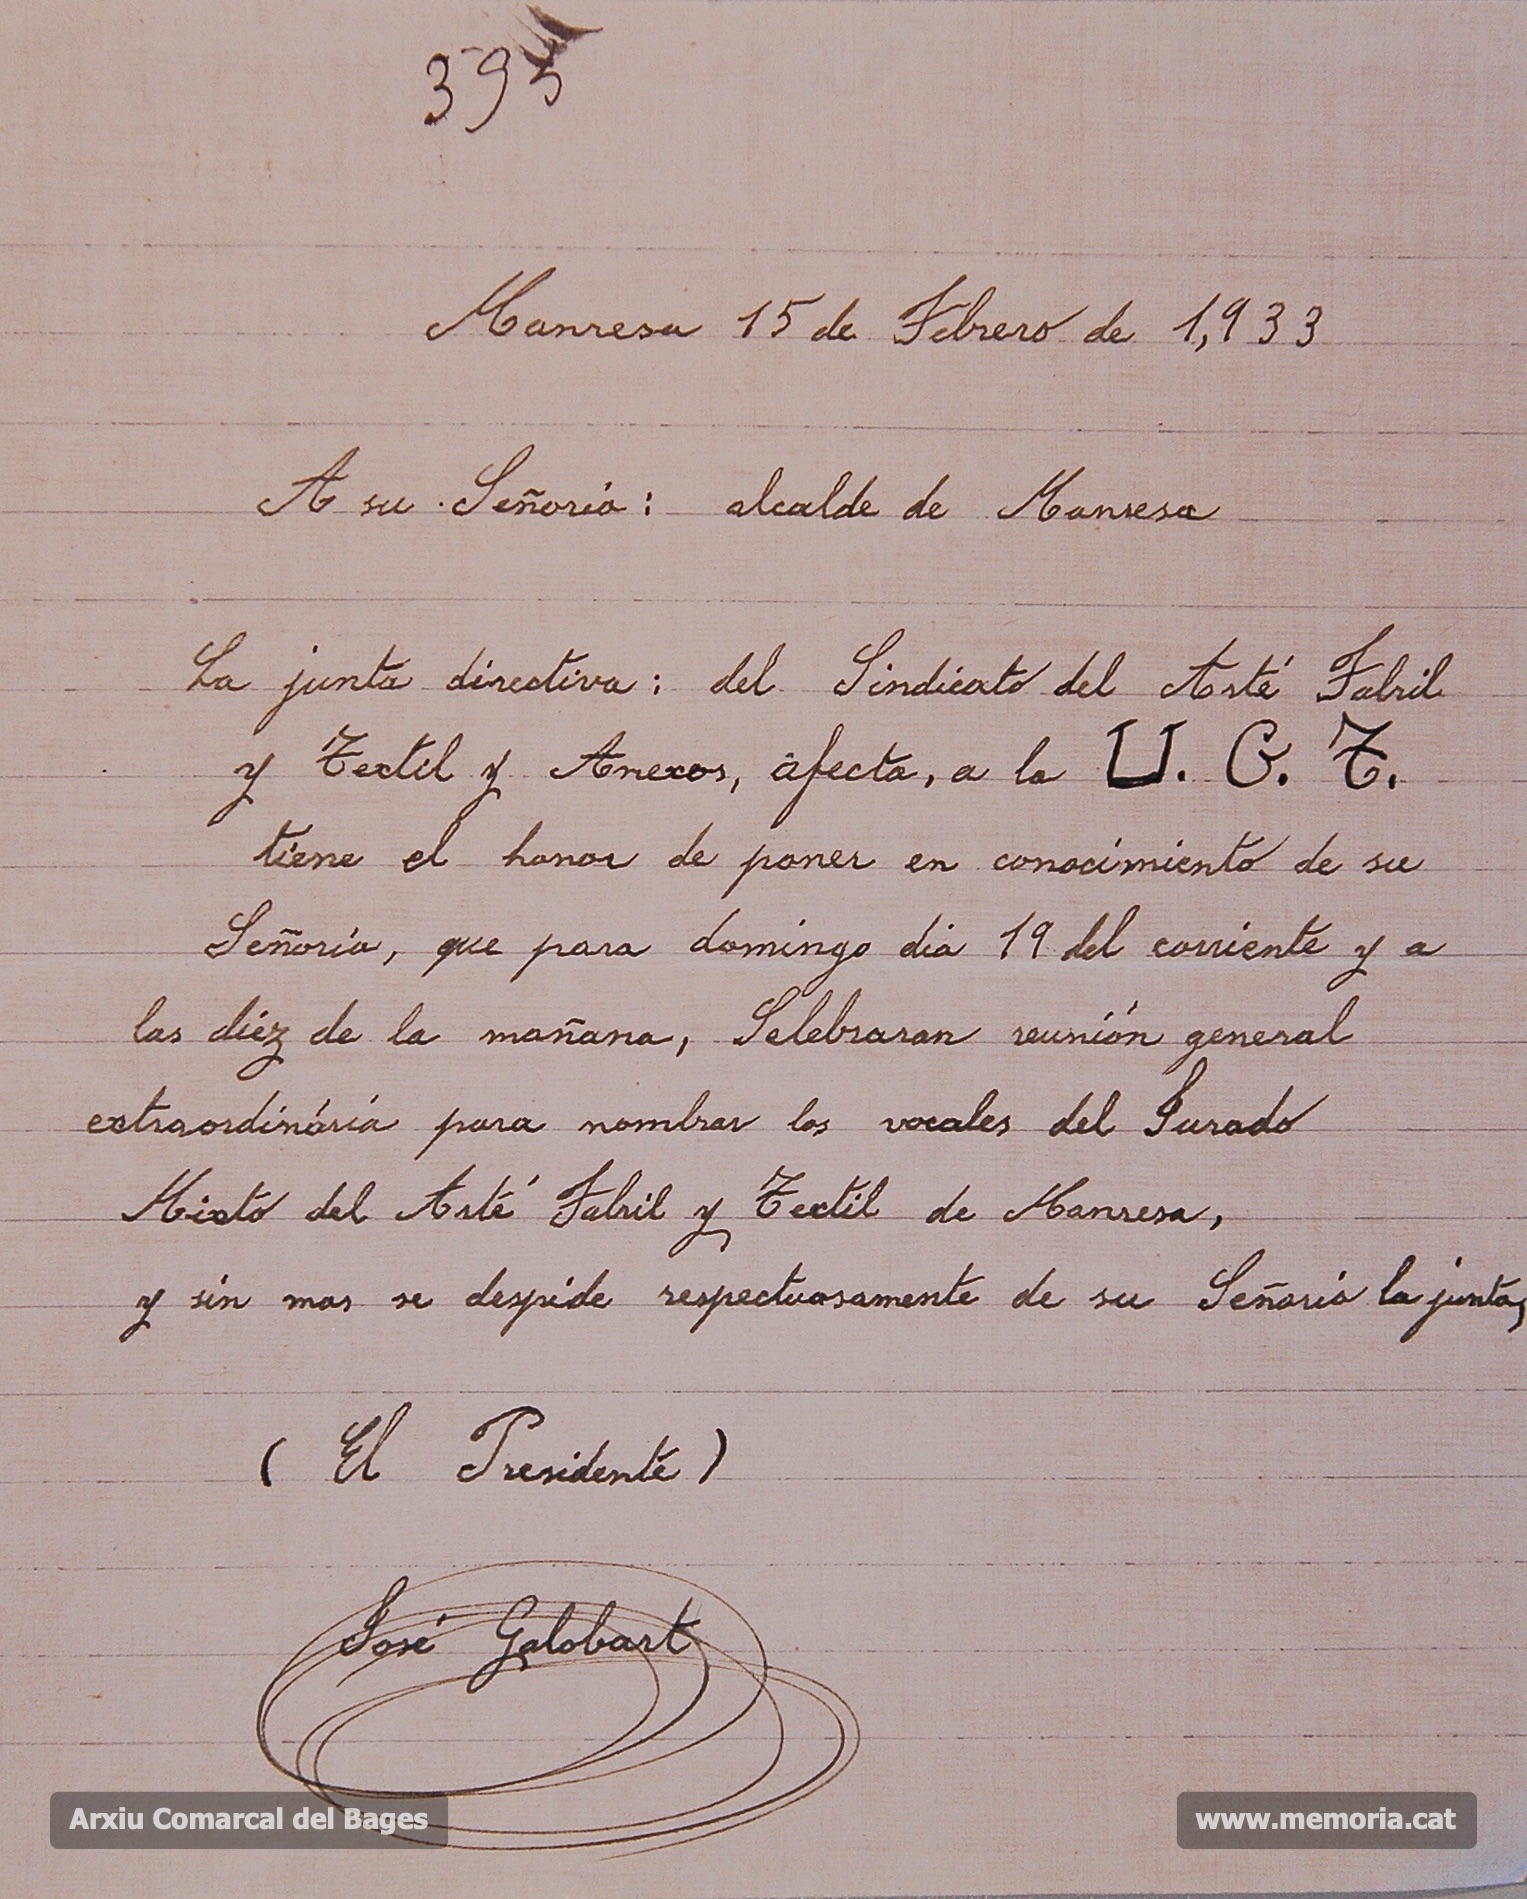 395
Manresa 15 de Febrero de 1,933
A su Señoria: alcalde de Manresa
La junta directiva: del Sindicato del Arté Fabril
y Textil y Anexos, afecta, a la U. G. T.
tiene el honor de poner en conocimiento de su
Señoria, que para domingo dia 19 del corriente y a
las diez de la mañana, Selebraran reunión general
extraordinária para nombrar los vocales del Jurado
Mixto del Arté Fabril y Textil de Manresa,
y sin mas se despide respectuosamente de su Señoria la junta,
(El Presidente)
José Galobart
Arxiu Comarcal del Bages
www.memoria.cat